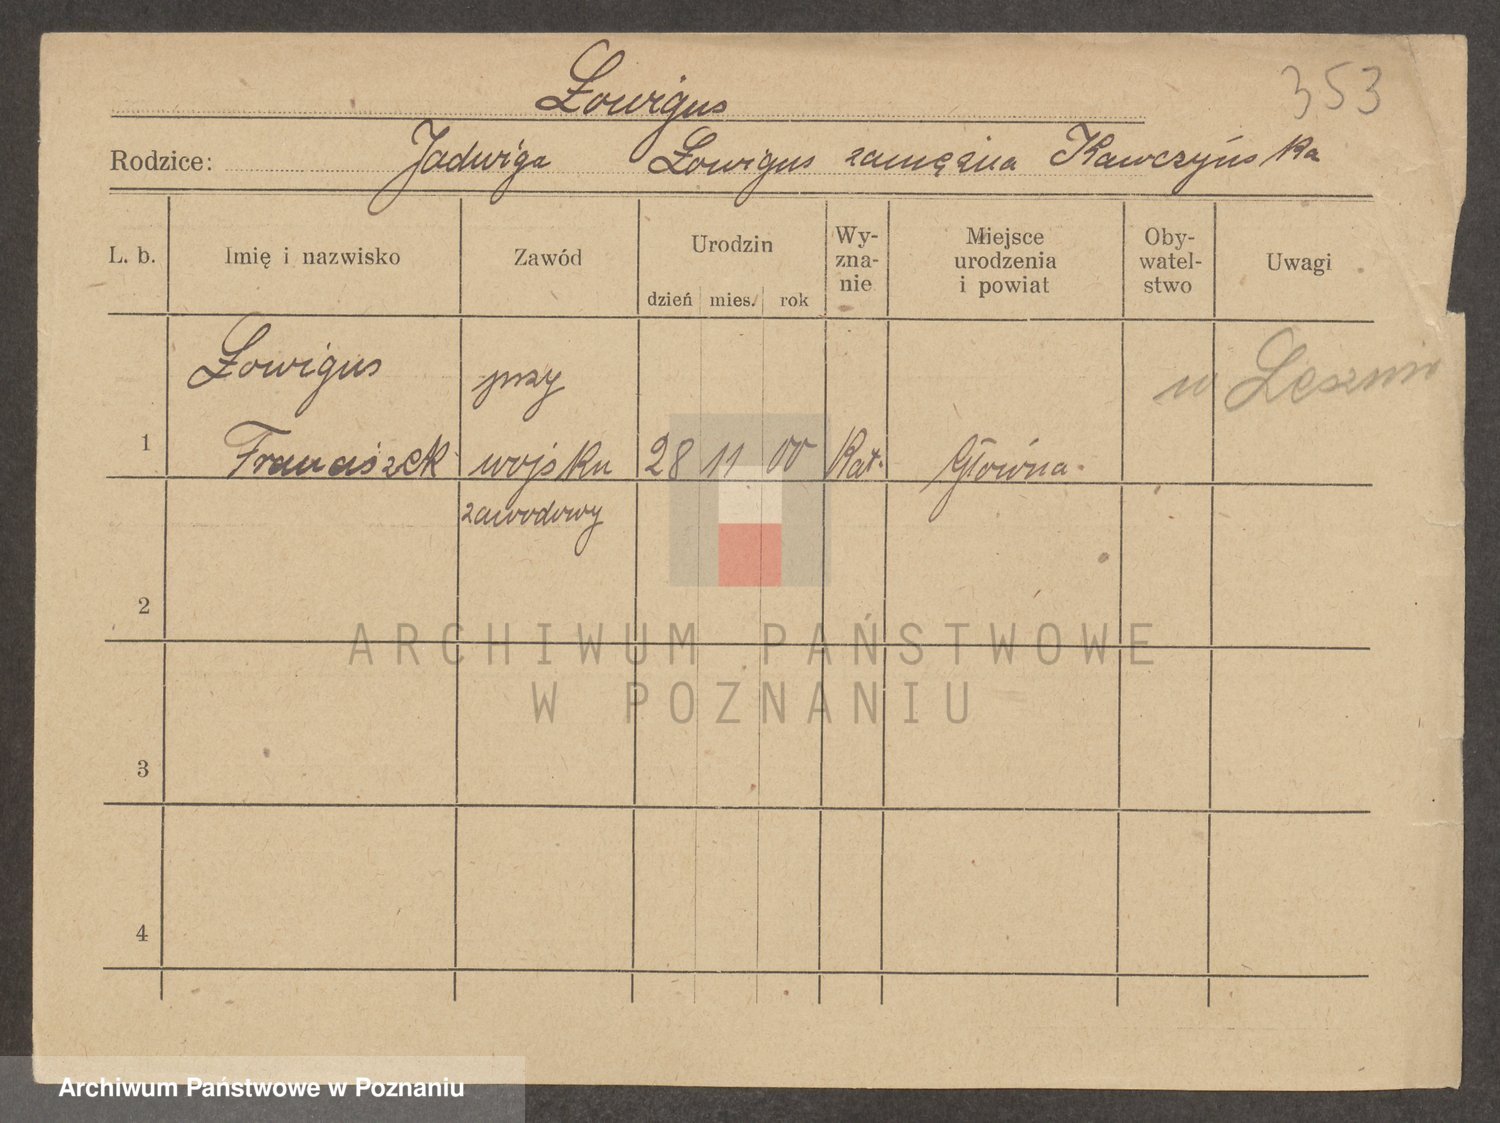 353
Łowigus
Rodzice: Jadwiga Łowigus zamężna Kawczyńska
L. b.
Imię i nazwisko
Zawód
Urodzin
dzień mies. rok
Wy-
zna-
nie
Miejsce
urodzenia
i powiat
Oby-
watel-
stwo
Uwagi
Łowigus przy w Lesznie
1 Franciszek wojsku 28 11 00 Kat. Główna.
zawodowy
2
3
4
ARCHIWUM PAŃSTWOWE
W POZNANIU
Archiwum Państwowe w Poznaniu